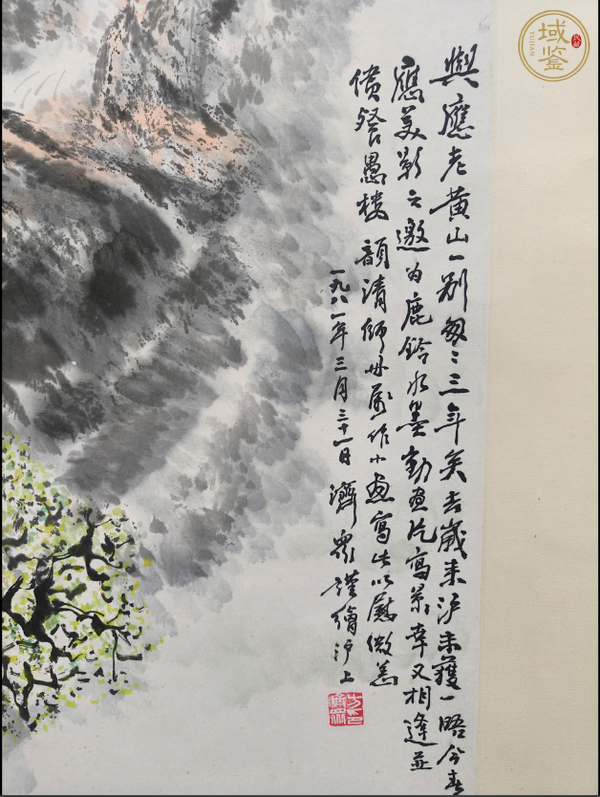 與應老黄山一别匆〻三年矣去歲来沪未獲一晤今春
應美影之邀为鹿鈴水墨動画片寫景幸又相逢並
愚楼 韻清師母屬作小画寫此以慰微恙
一九八一年三月三十一日 濟衆謹繪沪上
域鉴
YUJIAN